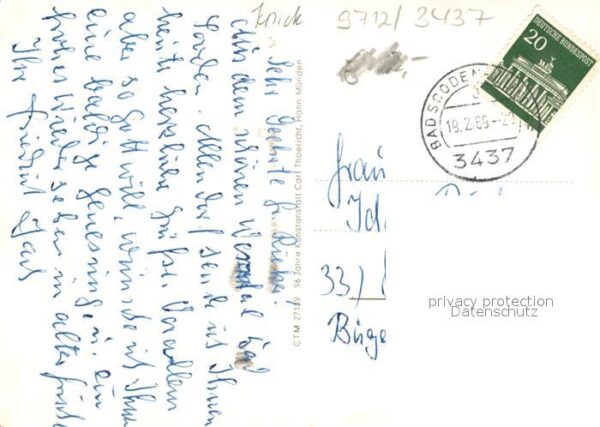 Knick
9712/3437
20
DEUTSCHE BUNDESPOST
BAD SOODEN
19.2.69-
3437
Sehr Geehrte Fr.
Aus dem schönen Bad
Sooden-Allendorf sende ich Ihnen
heute herzliche Grüße. Vor allem
aber so Gott will, wünsche ich Ihnen
eine baldige Genesung u. ein
frohes Wiedersehen in alter
Ihr
CTM 27129 96 Jahre Kunstanstalt Carl Thoericht, Hann Münden
Frau
33/
privacy protection
Datenschutz